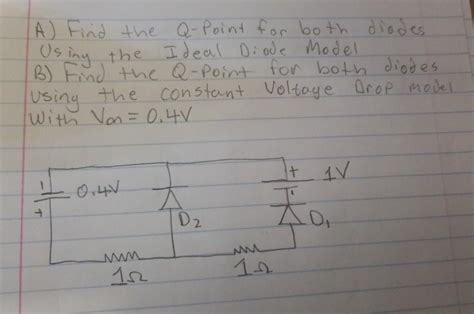 A) Find the Q-Point for both diodes
Using the Ideal Diode Model
B) Find the Q-Point for both diodes
using the constant Voltage Drop model
with Von = 0.4V
+ 1V
0.4V
+
D2
D1
1Ω
1Ω